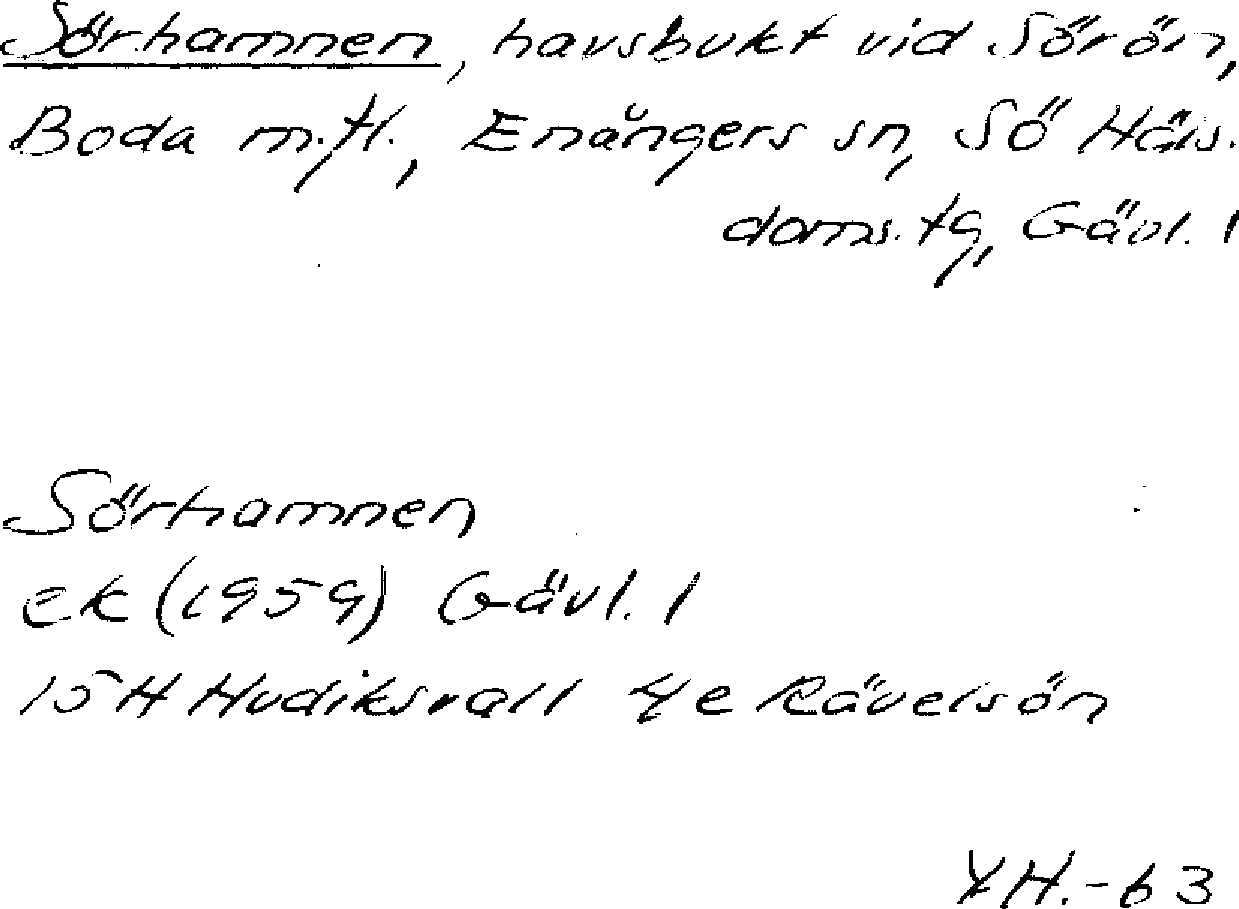 Sörhamnen, havsbukt vid Sörön,
Boda m.fl., Enångers sn, Sö Häls.
doms. tg, Gävl. l
Sörhamnen
ek (1959) Gävl. l
15H Hudiksvall 4e Rävelsön
YH.-63